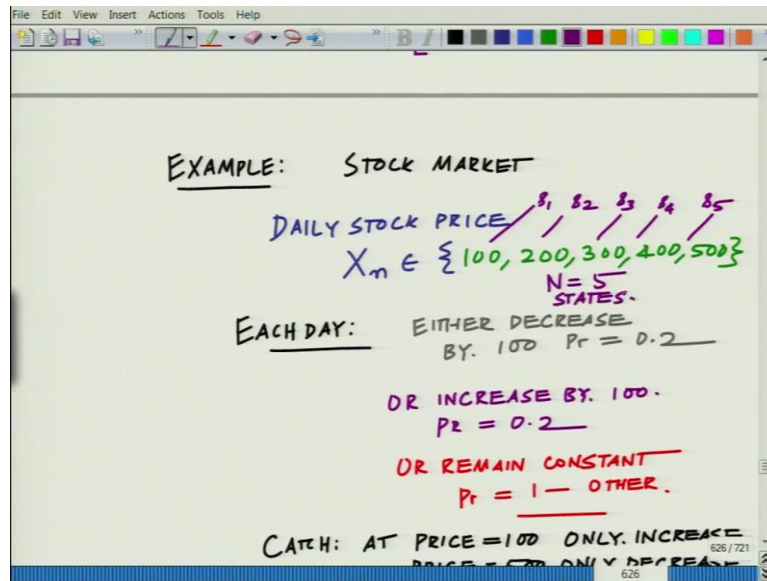 File Edit View Insert Actions Tools Help
B I
EXAMPLE: STOCK MARKET
s1 s2 s3 s4 s5
DAILY STOCK PRICE
Xn ∈ {100, 200, 300, 400, 500}
N = 5
STATES.
EACH DAY: EITHER DECREASE
BY. 100 Pr = 0.2
OR INCREASE BY. 100.
PR = 0.2
OR REMAIN CONSTANT
Pr = 1 — OTHER.
CATCH: AT PRICE = 100 ONLY. INCREASE
626/721
PRICE = 500 ONLY DECREASE
626